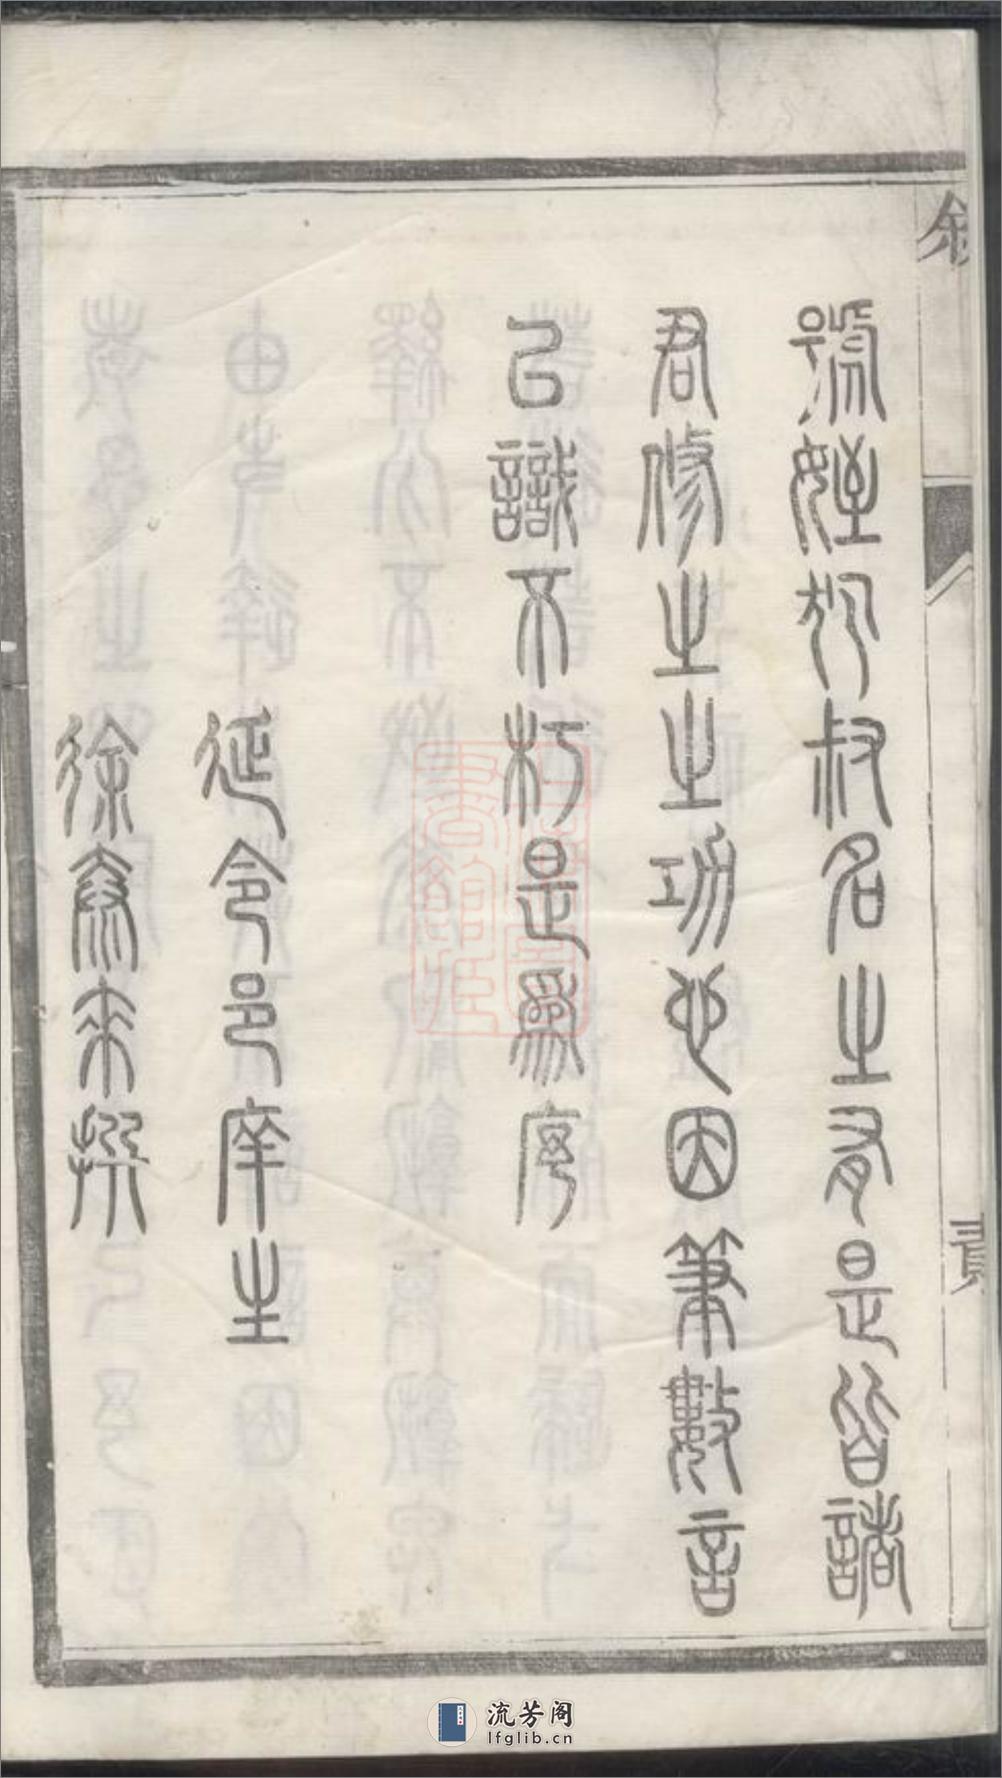 姪於叔名之有是皆諸
君修之之功也因筆數言
以識不朽是為序
延令邑庠生
徐泰來撰
流芳阁
lfglib.cn